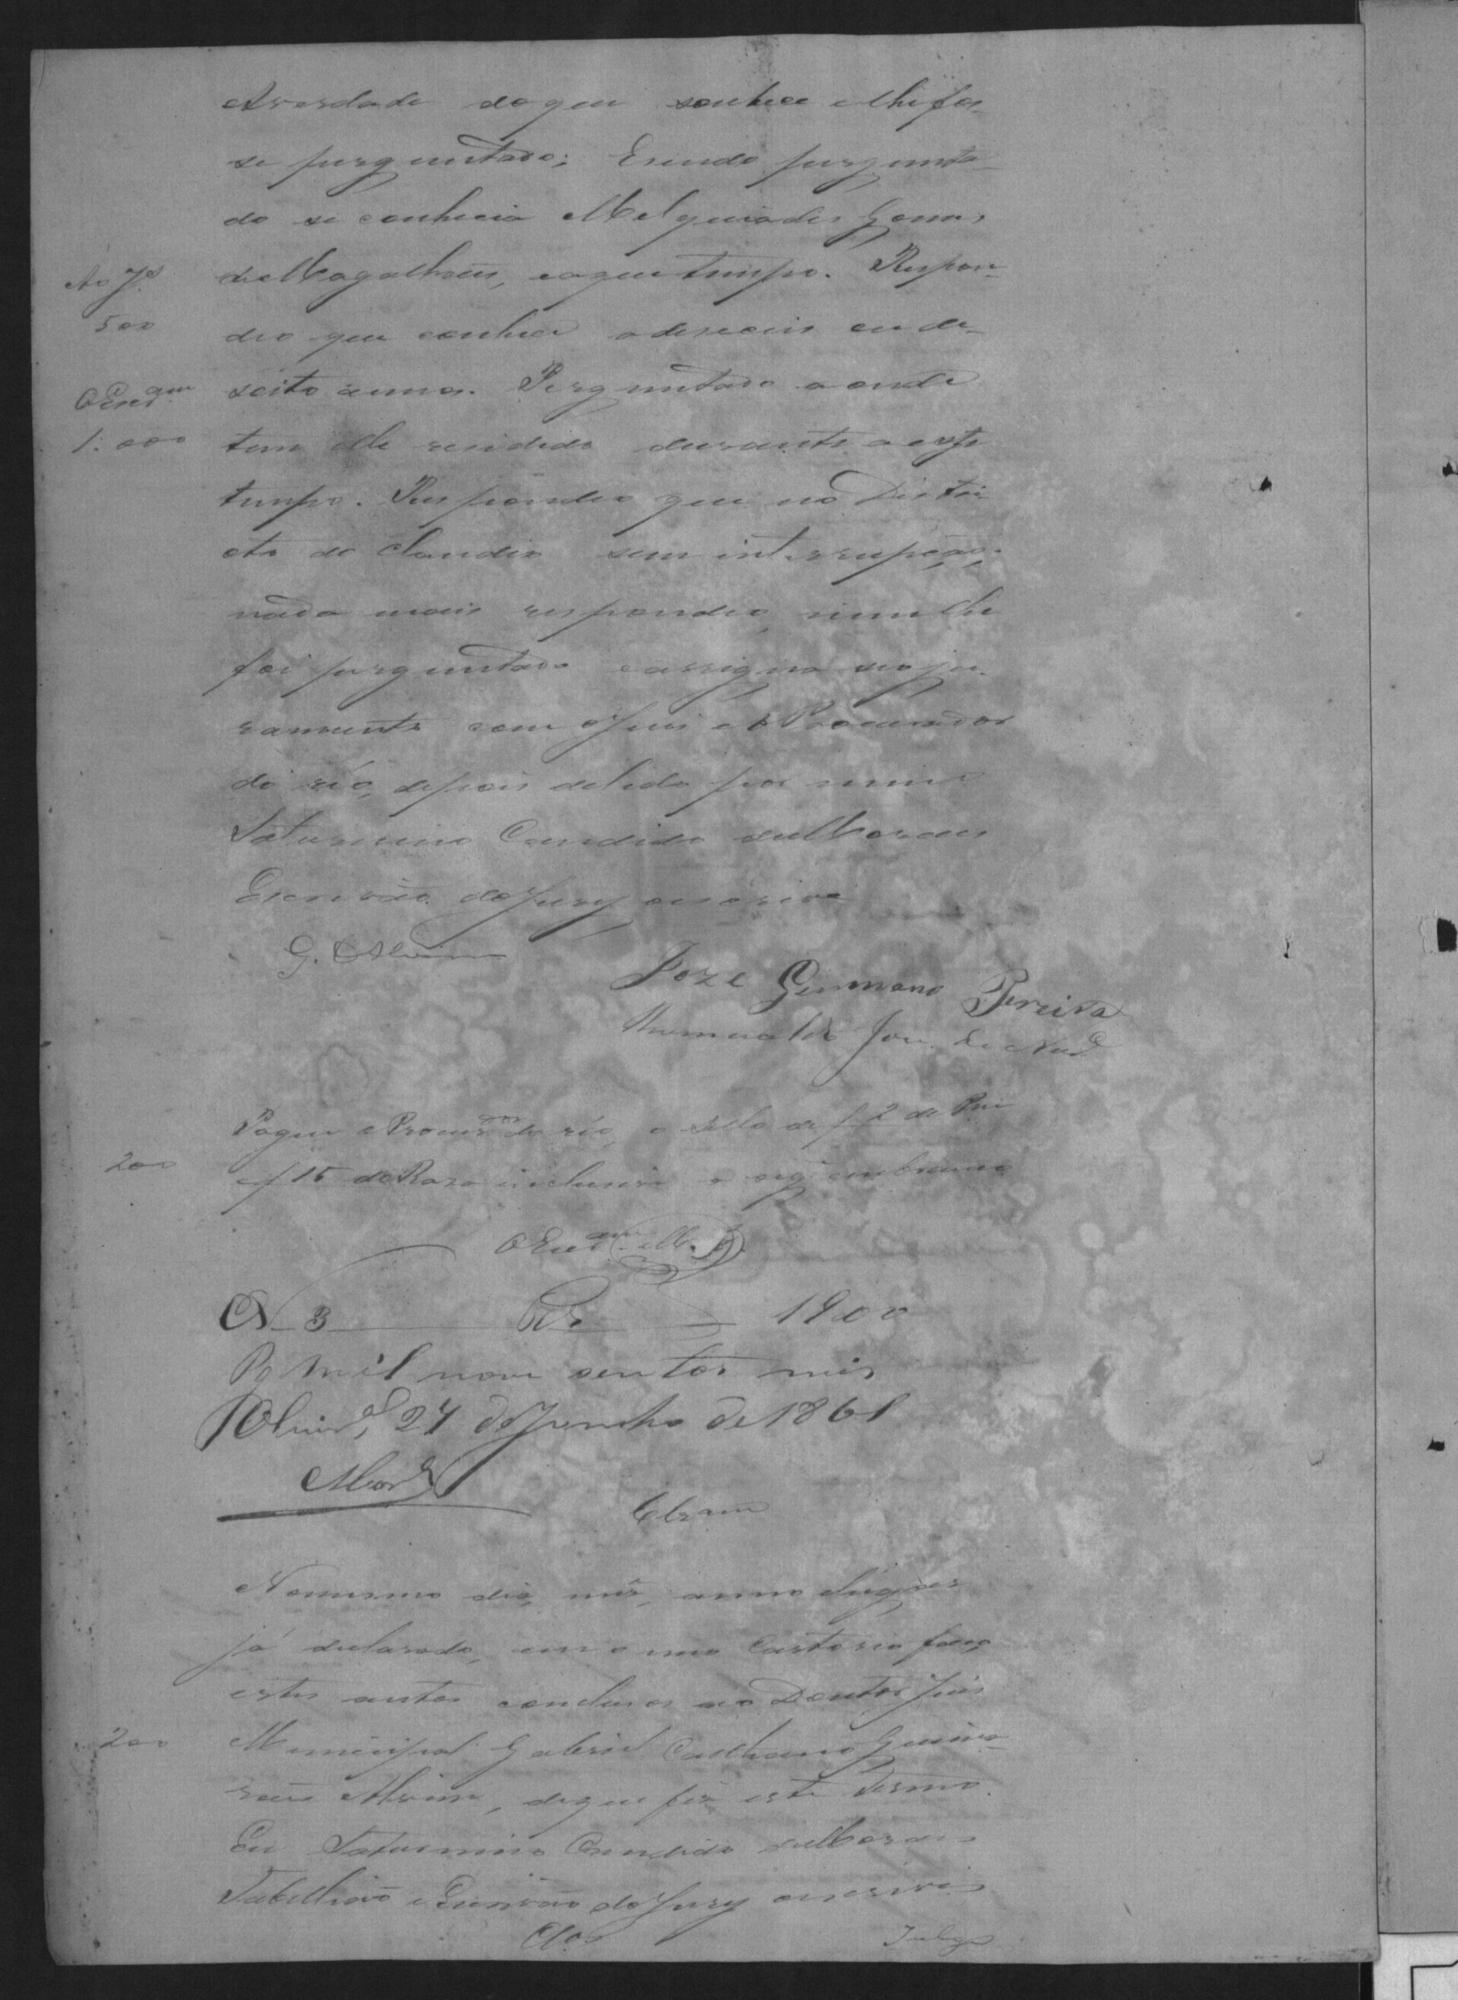 Averdade do que soubece e lhe fos-
se perguntado; E sendo pergunta-
do se conhecia Melquiades Gomes
de Magalhães, e a que tempo. Respon-
deo que conhece a deseceis ou de-
Ao J.
500
soito annos. Perguntado a onde
O Escr.am
1:000
tem elle residido durante a este
tempo. Respondeo que no Distri-
cto do Claudio sem interrupção.
nada mais respondeo, nem lhe
foi perguntado e assigna seo ju-
ramento com o Juis e o Procurador
do réo, depois de lido por mim
Saturnino Candido de Moraes
Escrivão do Jury o escrivi
G. Alvim
Joze Germano Pereira
Romualdo Jose de
Pagou o Procur.dor do réo, o sello de f 2 de
200
e f 15 da Raza inclusive a
O Escr.am M.
N 3 Rs. 1900
Pg mil nove sentos reis
Oliur.a 27 de Junho de 1861
Mor.
Clzam
No mesmo dia, mês, anno e lugar
já declarado, em o meo Cartorio faço
estes autos conclusos ao Doutor Juis
200
Municipal Gabriel Caetano Guima-
rães Alvim, de que fiz este termo.
Eu Saturnino Candido de Moraes
Tabellião e Escrivão do Jury o escrivi
Clos
Julgo